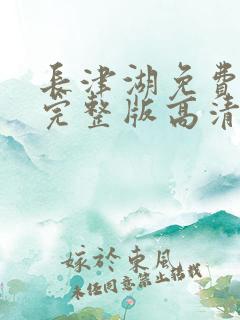 長津湖免費
完整版高清
嫁於東風
未經同意禁止搭載